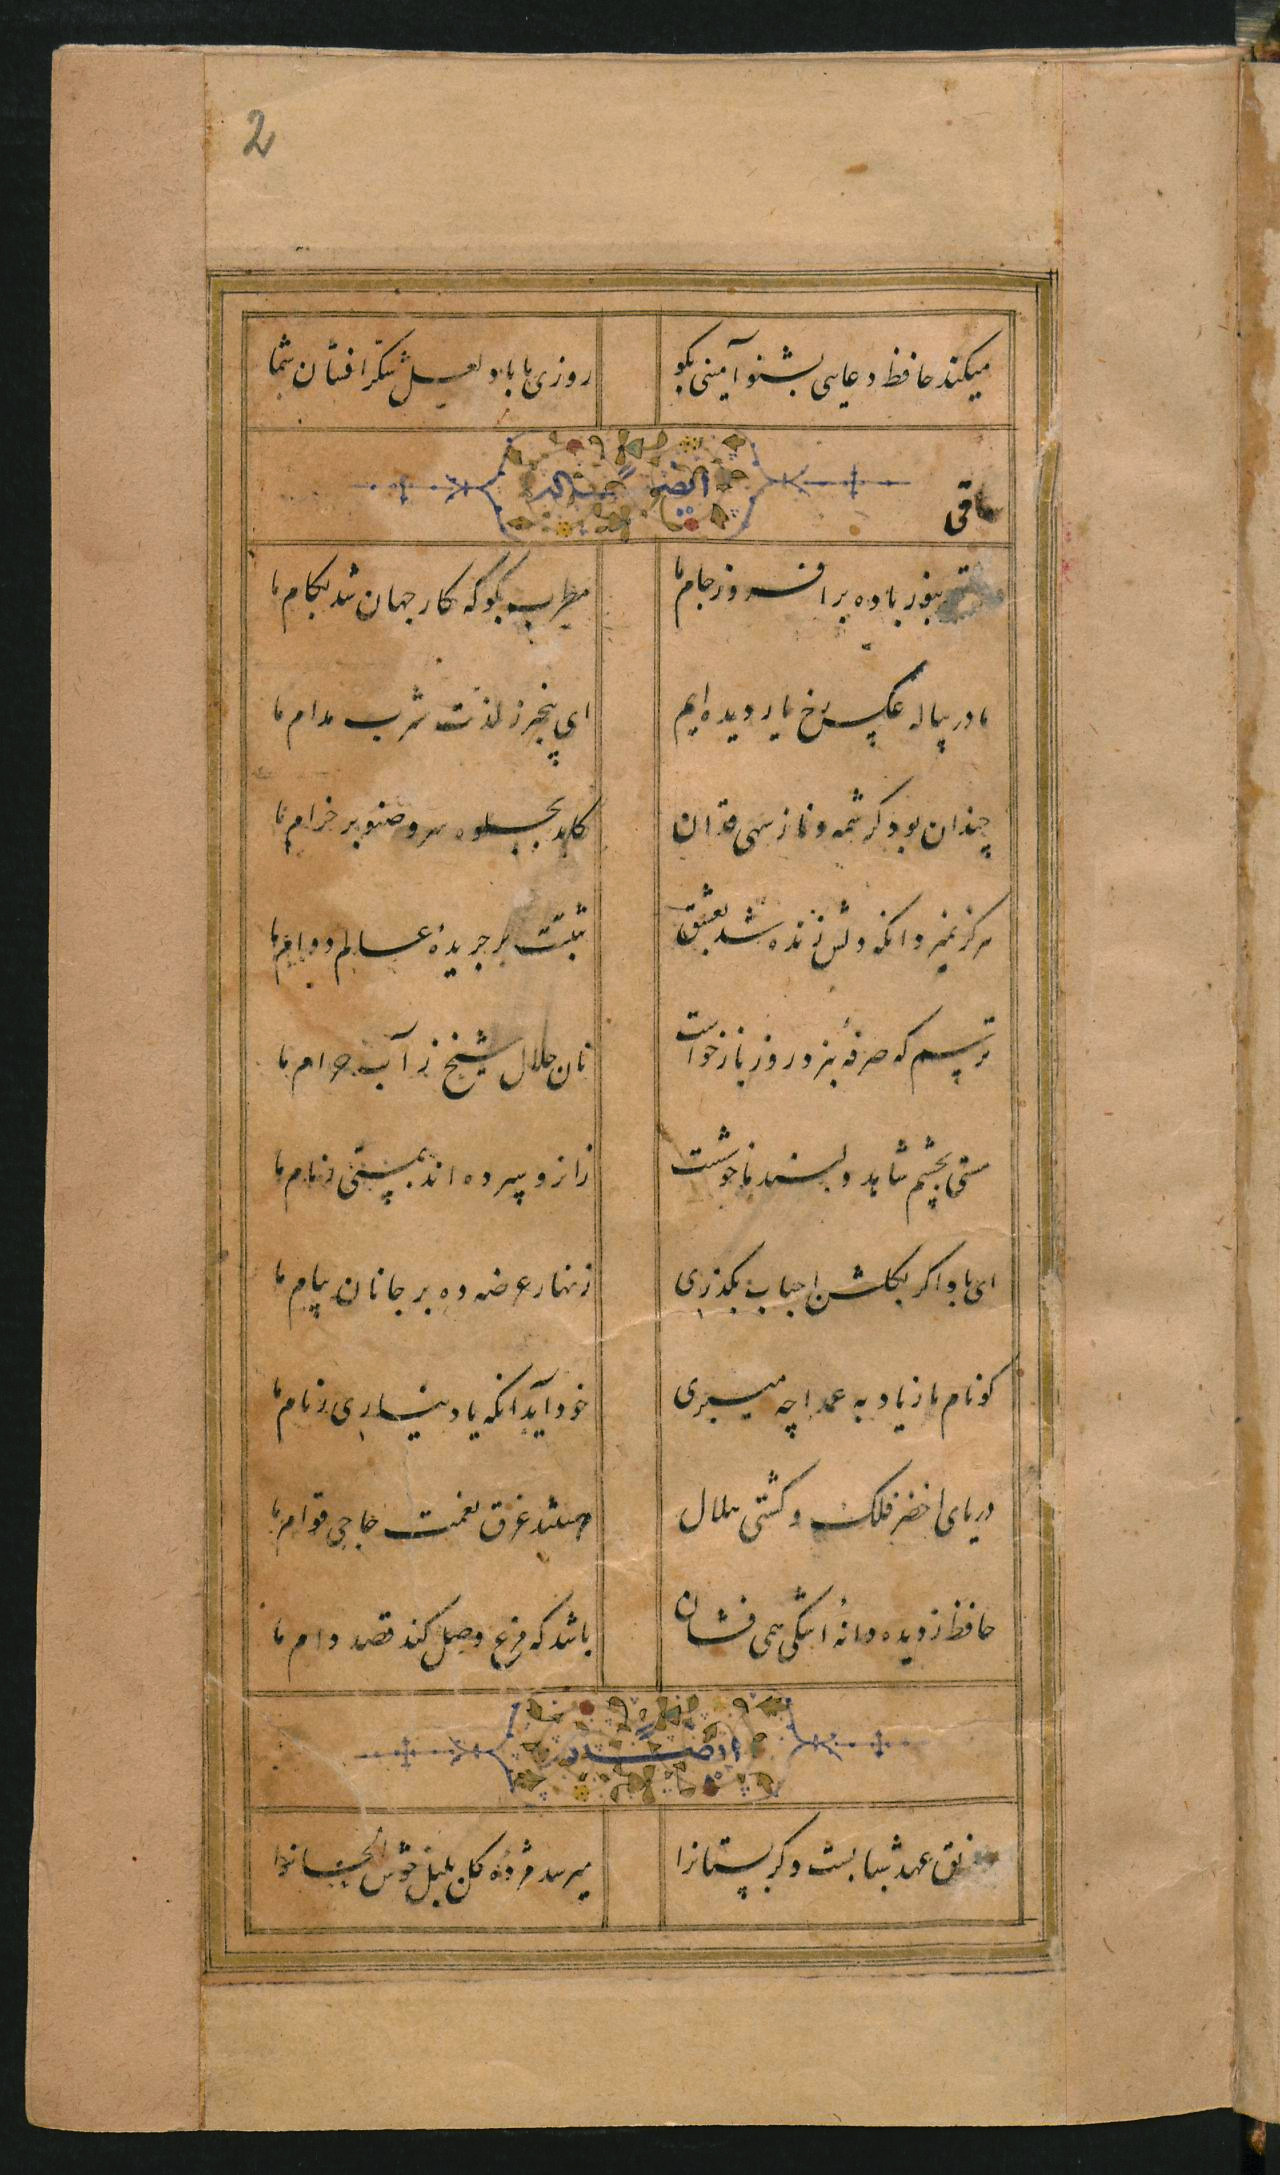 2
میکند حافظ دعایی بشنو آمینی بکو روزی ما باد لعل شکرافشان شما
ایضا له
ساقی
بنور باده برافروز جام ما مطرب بکو که کار جهان شد بکام ما
ما در پیاله عکس رخ یار دیده ایم ای بیخبر ز لذت شرب مدام ما
چندان بود کرشمه و ناز سهی قدان کاید بجلوه سرو صنوبر خرام ما
هرکز نمیرد انکه دلش زنده شد بعشق ثبتست بر جریدهٔ عالم دوام ما
ترسم که صرفهٔ نبرد روز بازخواست نان حلال شیخ ز آب حرام ما
مستی بچشم شاهد دلبند ما خوشست زانرو سپرده اند بمستی زمام ما
ای باد اکر بکلشن احباب بکذری زنهار عرضه ده بر جانان پیام ما
کو نام ما ز یاد به عمدا چه میبری خود آید آنکه یاد نیاری ز نام ما
دریای اخضر فلک و کشتی هلال هستند غرق نعمت حاجی قوام ما
حافظ ز دیده دانهٔ اشکی همی فشان باشد که مرغ وصل کند قصد دام ما
ایضا له
رونق عهد شبابست دکر بستانرا میرسد مژدهٔ کل بلبل خوش الحانرا